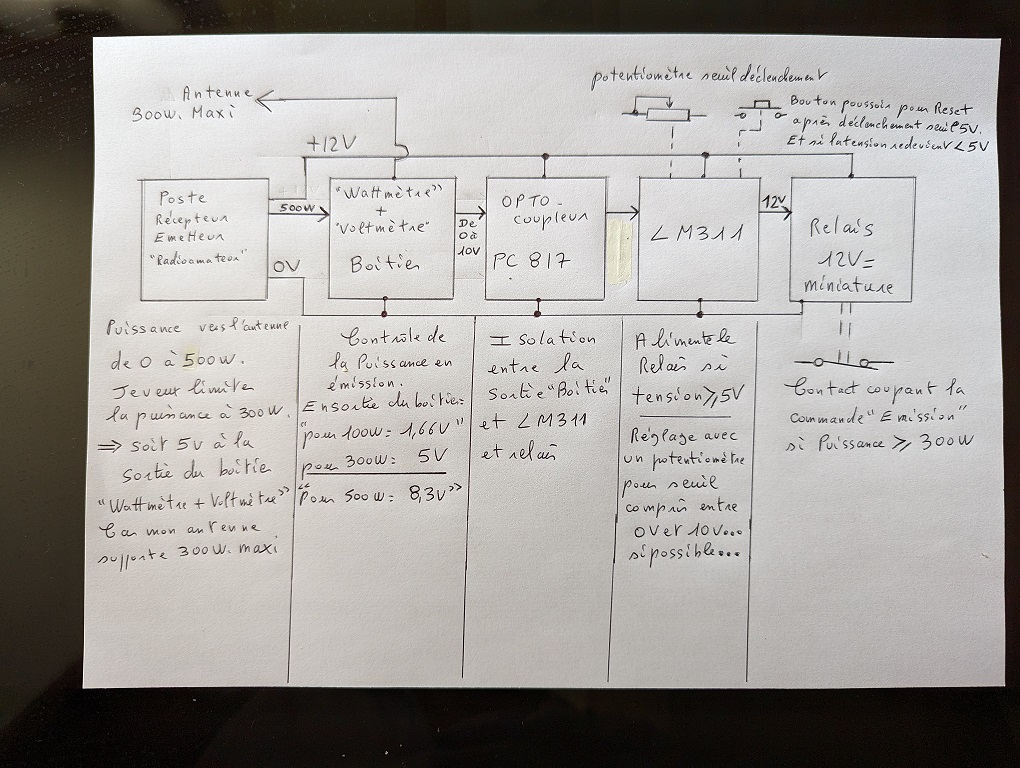 potentiomètre seuil déclenchement
Antenne
300W. Maxi
Bouton poussoir pour Reset
après déclanchement seuil 5V.
Et si la tension redevient < 5V
+12V
Poste
Récepteur
Emetteur
"Radioamateur"
500W
0V
"Wattmètre"
+
"Voltmètre"
Boîtier
De
0 à
10V
OPTO-
coupleur
PC 817
LM311
12V
Relais
12V=
miniature
Puissance vers l'antenne
de 0 à 500W.
Je veux limiter
la puissance à 300W.
⇒ soit 5V à la
Sortie du boîtier
"Wattmètre + Voltmètre"
Car mon antenne
supporte 300W. maxi
Contrôle de
la Puissance en
émission.
En sortie du boîtier:
"pour 100W = 1,66V"
pour 300W = 5V
"Pour 500W = 8,3V"
Isolation
entre la
Sortie "Boîtier"
et LM311
et relais
Alimente le
Relais si
tension ≥ 5V
Réglage avec
un potentiomètre
pour seuil
compris entre
0V et 10V...
si possible...
Contact coupant la
commande "Emission"
si Puissance ≥ 300W